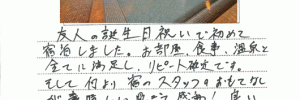 友人の誕生日祝いで初めて
宿泊しました。お部屋、食事、温泉と
全てに満足し、リピート確定です。
そして何より宿のスタッフのおもてなし
が素晴らしい